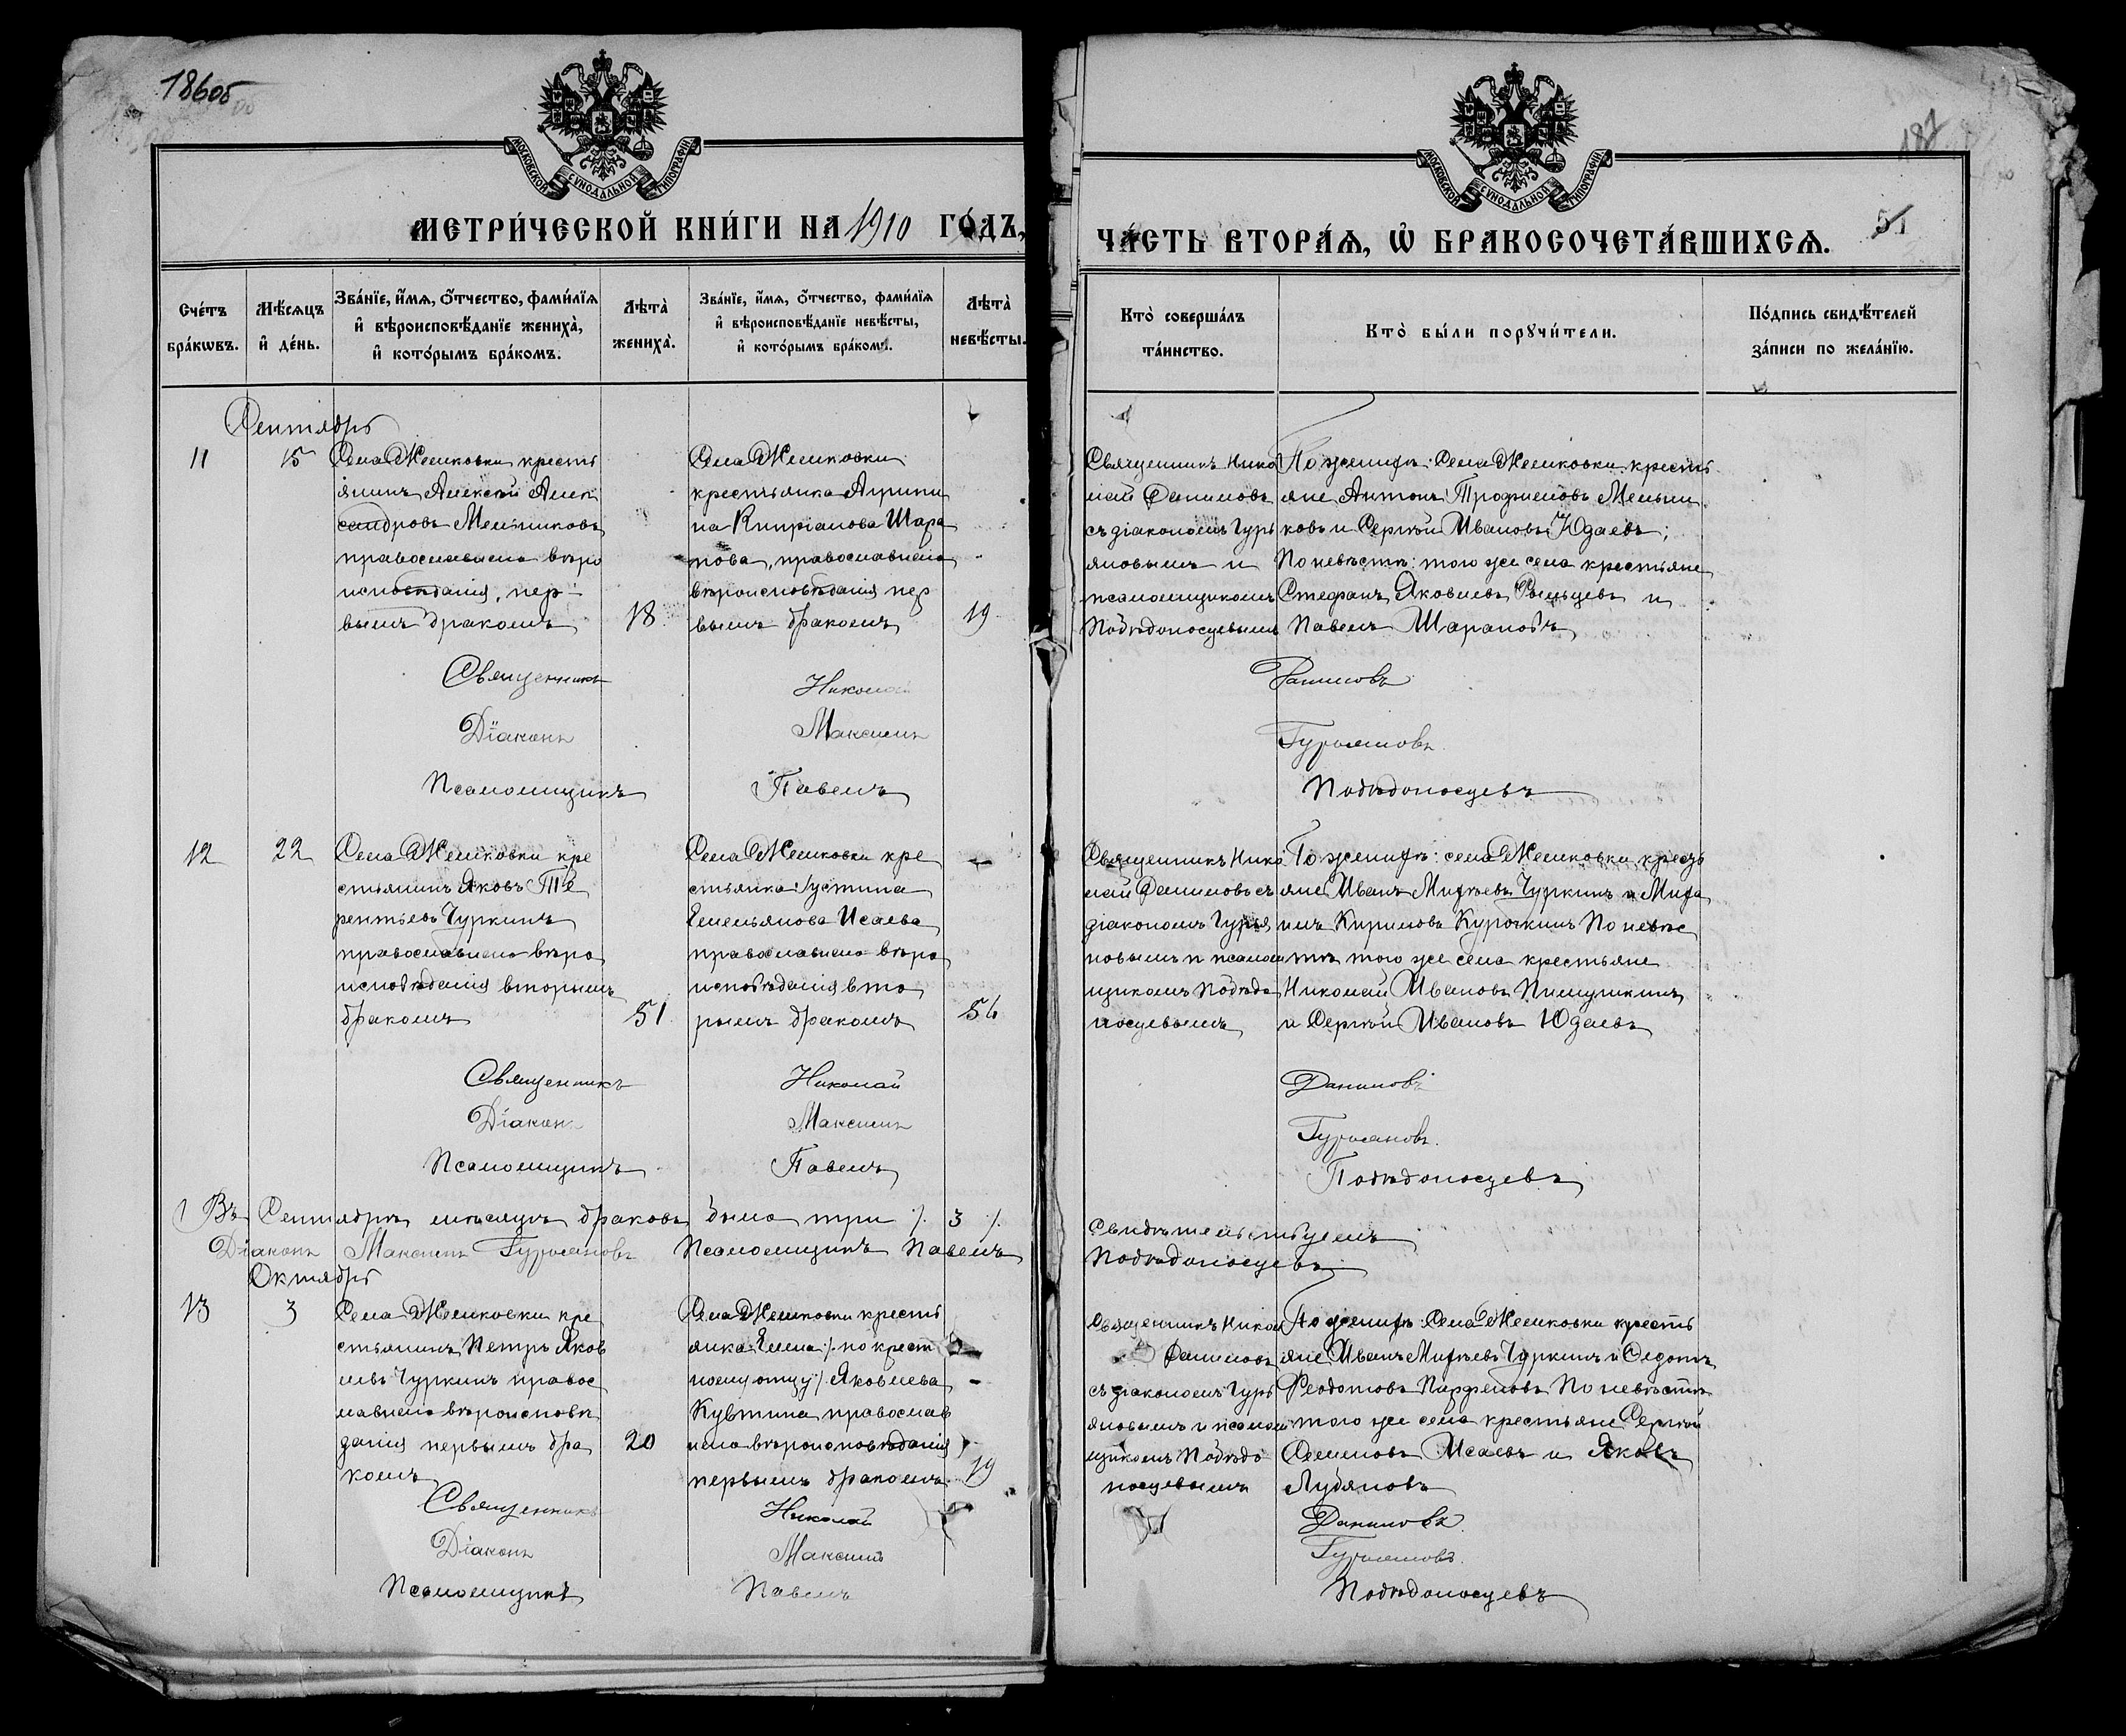 186об
МОСКОВСКОЙ СѴНОДАЛЬНОЙ ТИПОГРАФІИ.
МЕТРИ́ЧЕСКОЙ КНИ́ГИ НА 1910 ГО́ДЪ,
Сче́тъ бра́кѡвъ.
Мѣ́сяцъ и҆ де́нь.
Зва́нїе, и҆́мя, ѻ҆́тчество, фами́лїя
и҆ вѣроисповѣ́данїе жениха̀,
и҆ кото́рымъ бра́комъ.
Лѣта̀ жениха̀.
Зва́нїе, и҆́мя, ѻ҆́тчество, фами́лїя
и҆ вѣроисповѣ́данїе невѣ́сты,
и҆ кото́рымъ бра́комъ.
Лѣта̀ невѣ́сты.
Сентябрь
11
15
Села Жемковки кресть
янинъ Алексѣй Алек
сандровъ Мельниковъ
православнаго вѣро
исповѣданія, пер-
вымъ бракомъ
18
Села Жемковки
крестьянка Агрипи
на Кипріанова Шара
пова, православнаго
вѣроисповѣданія пер
вымъ бракомъ
19
Священникъ Николай
Діаконъ Максимъ
Псаломщикъ Павелъ
12
22
Села Жемковки кре
стьянинъ Яковъ Те
рентьевъ Чуркинъ
православнаго вѣро
исповѣданія вторымъ
бракомъ
51
Села Жемковки кре
стьянка Іустина
Емельянова Исаева
православнаго вѣро
исповѣданія вто
рымъ бракомъ
56
Священникъ Николай
Діаконъ Максимъ
Псаломщикъ Павелъ
Въ Сентябрѣ мѣсяцѣ браковъ было три /. 3 /.
Діаконъ Максимъ Гурьяновъ Псаломщикъ Павелъ
Октябрь
13
3
Села Жемковки кре
стьянинъ Петръ Яков
левъ Чуркинъ правос
лавнаго вѣроисповѣ
данія первымъ бра
комъ
20
Села Жемковки кресть
янка Елена /. по крест
ному отцу /. Яковлева
православ
наго вѣроисповѣданія
первымъ бракомъ
19
Священникъ Николай
Діаконъ Максимъ
Псаломщикъ Павелъ
187
МОСКОВСКОЙ СѴНОДАЛЬНОЙ ТИПОГРАФІИ.
51
ЧА́СТЬ ВТОРА́Я, Ѡ҆ БРАКОСОЧЕТА́ВШИХСЯ.
Кто̀ соверша́лъ та́инство.
Кто̀ бы́ли порꙋчи́тели.
По́дпись свидѣ́телей за́писи по жела́нїю.
Священникъ Нико
лай Даниловъ
съ діакономъ Гурь
яновымъ и
псаломщикомъ
Побѣдоносцевымъ
По женихѣ: Села Жемковки кресть
яне Антонъ Трофимовъ Мельни
ковъ и Сергѣй Ивановъ Юдаевъ;
По невѣстѣ: того же села крестьяне
Стефанъ Яковлевъ и
Павелъ Шараповъ
Даниловъ
Гурьяновъ.
Побѣдоносцевъ
Священникъ Нико
лай Даниловъ съ
діакономъ Гурья
новымъ и псалом
щикомъ Побѣдо
носцевымъ
По женихѣ: села Жемковки кресть
яне Иванъ Михѣевъ Чуркинъ и Миха
илъ Кириловъ Курочкинъ По невѣс
тѣ того же села крестьяне
Николай Ивановъ Пимушкинъ
и Сергѣй Ивановъ Юдаевъ
Даниловъ
Гурьяновъ.
Побѣдоносцевъ
Свидѣтельствуемъ
Побѣдоносцевъ
Священникъ Никол
Даниловъ
съ діакономъ Гурь
яновымъ и псалом
щикомъ Побѣдо
носцевымъ
По женихѣ: Села Жемковки кресть
яне Иванъ Михѣевъ Чуркинъ и Федотъ
Феодотовъ Парфеновъ По невѣстѣ
того же села крестьяне Сергѣй
Семеновъ Исаевъ и Яковъ
Лубяновъ
Даниловъ.
Гурьяновъ.
Побѣдоносцевъ